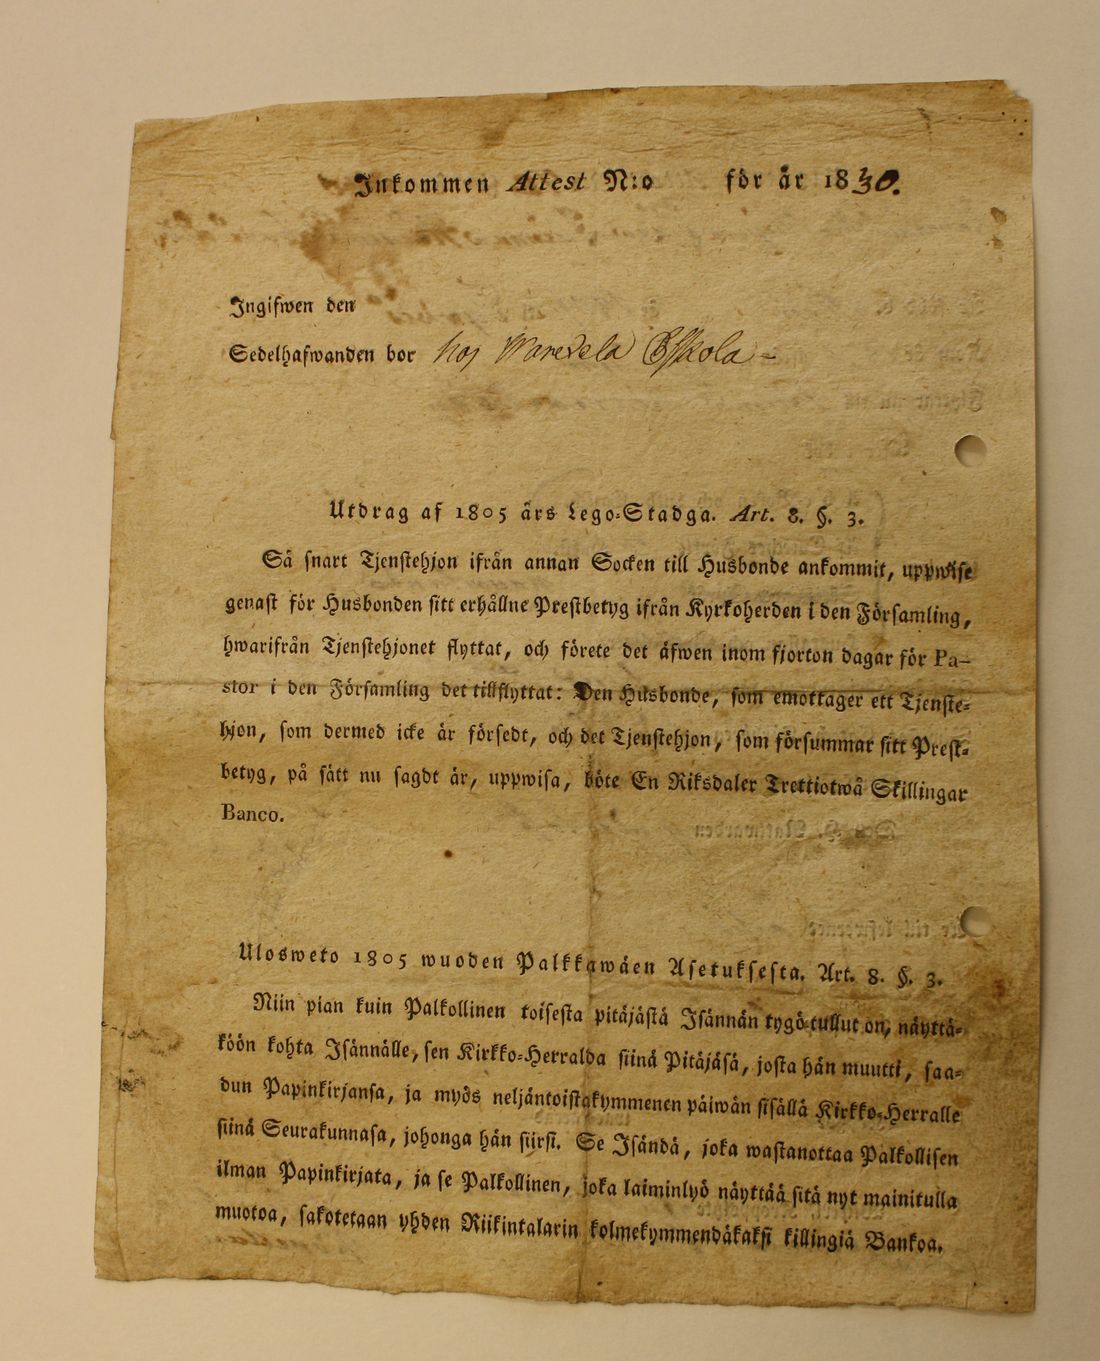 Inkommen Attest N:o för år 1830.
Ingifwen den
Sedelhafwanden bor hos Waredela Eskola -
Utdrag af 1805 års Lego-Stadga. Art. 8. §. 3.
Så snart Tjenstehjon ifrån annan Socken till Husbonde ankommit, uppwise
genast för Husbonden sitt erhållne Prestbetyg ifrån Kyrkoherden i den Församling,
hwarifrån Tjenstehjonet flyttat, och förete det äfwen inom fjorton dagar för Pa-
stor i den Församling det tillflyttat: Den Husbonde, som emottager ett Tjenste-
hjon, som dermed icke är försedt, och det Tjenstehjon, som försummar sitt Prest-
betyg, på sätt nu sagdt är, uppwisa, böte En Riksdaler Trettiotwå Skillingar
Banco.
Ulosweto 1805 wuoden Palkkawäen Asetuksesta. Art. 8. §. 3.
Niin pian kuin Palkollinen toisesta pitäjästä Isännän tygö-tullut on, näyttä-
köön kohta Isännälle, sen Kirkko-Herralda siinä Pitäjäsä, josta hän muutti, saa-
dun Papinkirjansa, ja myös neljäntoistakymmenen päiwän sisällä Kirkko-Herralle
siinä Seurakunnasa, johonga hän siirsi. Se Isändä, joka wastanottaa Palkollisen
ilman Papinkirjata, ja se Palkollinen, joka laiminlyö näyttää sitä nyt mainitulla
muotoa, sakotetaan yhden Riikintalarin kolmekymmendäkaksi killingiä Bankoa.